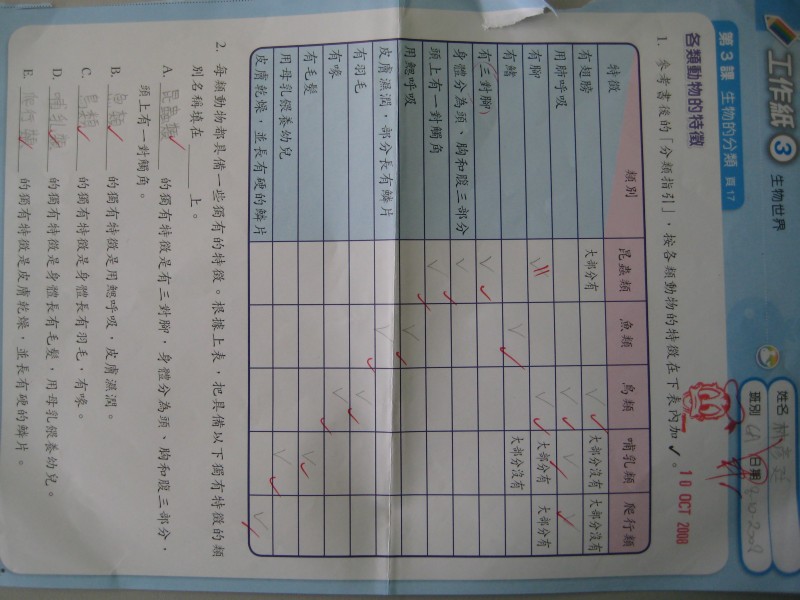 工作紙 3 生物世界
第 3 課 生物的分類 頁 17
姓名
班別 6A 日期
各類動物的特徵
10 OCT 2008
1. 參考書後的「分類指引」，按各類動物的特徵在下表內加 ✓。
特徵 類別 昆蟲類 魚類 鳥類 哺乳類 爬行類
有翅膀 大部分有 ✓ 大部分沒有 大部分沒有
用肺呼吸 ✓ ✓ ✓
有腳 ✓ ✓ 大部分有 大部分有
有鰭 ✓ 大部分沒有
有(三對腳) ✓
身體分為頭、胸和腹三部分 ✓
頭上有一對觸角 ✓
用鰓呼吸 ✓
皮膚濕潤，部分長有鱗片 ✓
有羽毛 ✓
有喙 ✓
有毛髮 ✓
用母乳餵養幼兒 ✓
皮膚乾燥，並長有硬的鱗片 ✓
2. 每類動物都具備一些獨有的特徵。根據上表，把具備以下獨有特徵的類
別名稱填在 上。
A. 昆蟲類 的獨有特徵是有三對腳，身體分為頭、胸和腹三部分，
頭上有一對觸角。
B. 魚類 的獨有特徵是用鰓呼吸，皮膚濕潤。
C. 鳥類 的獨有特徵是身體長有羽毛，有喙。
D. 哺乳類 的獨有特徵是身體長有毛髮，用母乳餵養幼兒。
E. 爬行類 的獨有特徵是皮膚乾燥，並長有硬的鱗片。